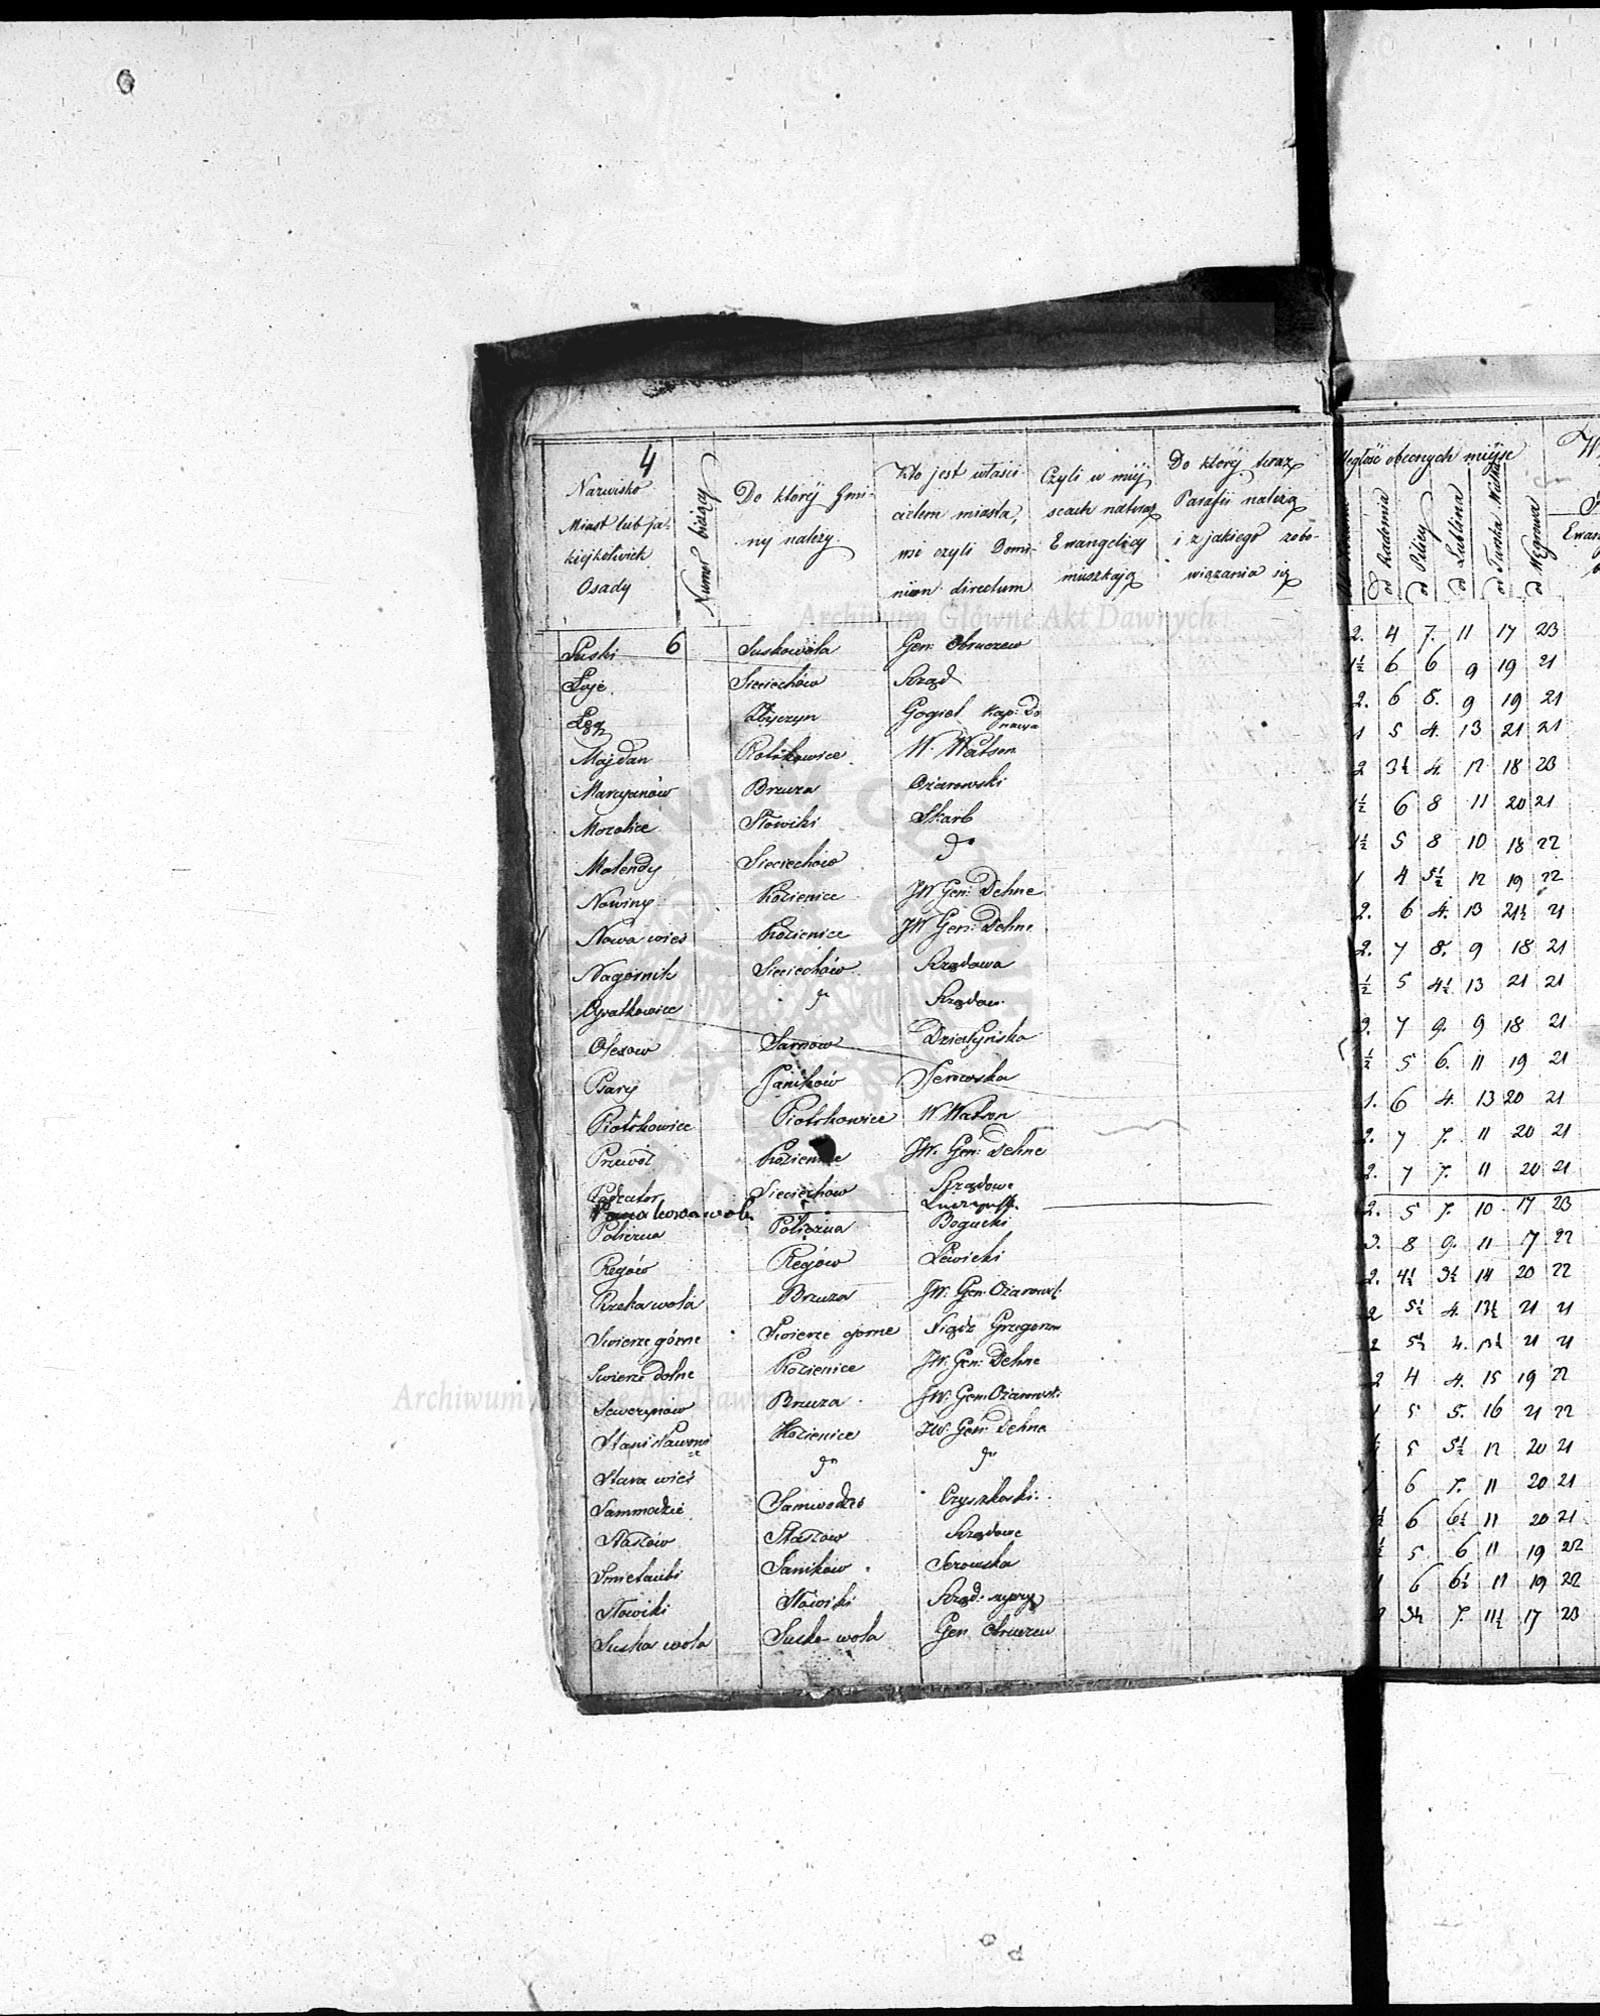 4
Nazwisko
Miast lub ja-
kiejkolwiek
Osady
Numer bieżący
Do którÿ Gmi-
ny należy
Kto jest właści-
cielem miasta,
wsi czyli Domi-
nium directum
Czyli w miÿ
scach natenczas
Ewangelicy
mieszkają
Do którÿ teraz
Parafii należą
i z jakiego zobo-
wiązania się
Odległość obecnych miejsc
od Radomia
od Pilicy
od Lublina
od Węgrowa
Archiwum Główne Akt Dawnych
Suski 6 Suskowola Gen: 2. 4 7. 11 17 23
Łoje Sieciechów Rząd 1½ 6 6 9 19 21
Łęg Gogiel Kap: 2. 6 8. 9 19 21
Majdan W. Watson 1 5 4. 13 21 21
Maryanów Brzuza Ożarowski 2 3½ 4. 12 18 23
Mozolice Słowiki Skarb 1½ 6 8 11 20 21
Molendy Sieciechów do 1½ 5 8 10 18 22
Nowiny Kozienice JW Gen: Dehne 1 4 5½ 12 19 22
Nowa wieś Kozienice JW Gen: Dehne 2. 6 4. 13 21½ 21
Nagornik Sieciechów Rządowa 2. 7 8. 9 18 21
Opatkowice do Rządow. ½ 5 4½ 13 21 21
Olexow Sarnow Działyńska 3. 7 9. 9 18 21
Psary Janików Serowska ½ 5 6. 11 19 21
Piotrkowice Piotrkowice W Watson 1. 6 4. 13 20 21
Przewóz Kozienice JW. Gen: Dehne 2. 7 7. 11 20 21
Sieciechow Rządowe 2. 7 7. 11 20 21
Policzna Policzna Bogucki 2. 5 7. 10 17 23
Regów Regów Lewicki 3. 8 9. 11 17 22
Rzeka wola Brzuza JW. Gen: Ożarowsk: 2. 4½ 3½ 14 20 22
Swierze górne Swierze gorne Xiądz Grzegorz 2 5½ 4. 13½ 21 21
Swierze dolne Kozienice JW. Gen: Dehne 2 5½ 4. 13½ 21 21
Sewerynow Brzuza JW: Gen: Ożarowsk: 2 4 4. 15 19 22
Kozienice JW. Gen: Dehne 1 5 5. 16 21 22
Stara wieś do do 5 5½ 12 20 21
Samwodzie 6 7. 11 20 21
Staszów Staszow Rządowe 6 6½ 11 20 21
Janików Serowska ½ 5 6 11 19 22
Słowiki Słowiki Rząd: 1 6 6½ 11 19 22
Suska wola Suska wola Gen 3½ 7. 11½ 17 23
Archiwum Główne Akt Dawnych